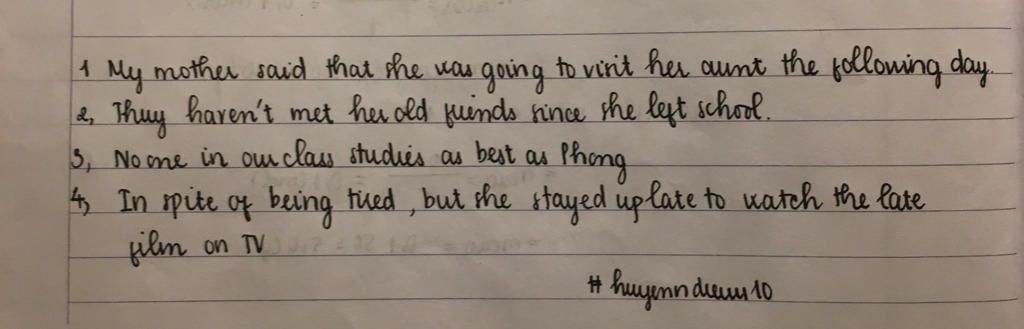 1 My mother said that she was going to visit her aunt the following day.
2, Thuy haven't met her old friends since she left school.
3, No one in our class studies as best as Phong
4, In spite of being tired, but she stayed up late to watch the late
film on TV
# huyenndieuu10